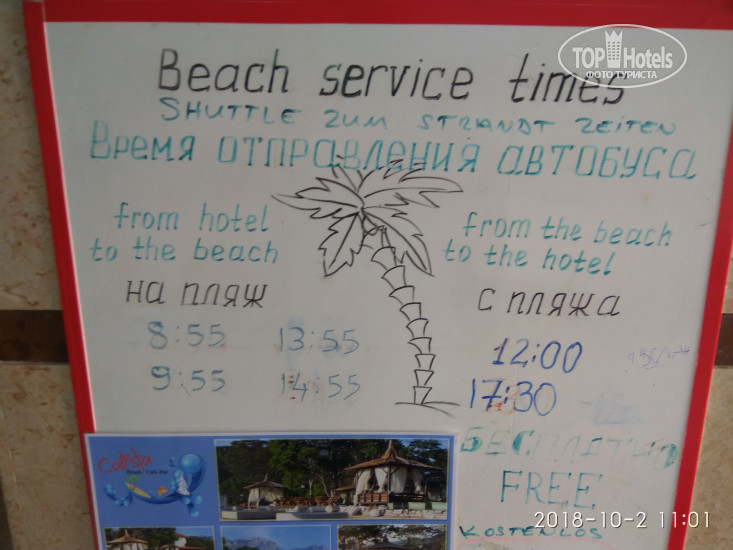 TOP Hotels
ФОТО ТУРИСТА
Beach service times
SHUTTLE ZUM STRANDT ZEITEN
ВРЕМЯ ОТПРАВЛЕНИЯ АВТОБУСА
from hotel
to the beach
на пляж
8:55 13:55
9:55 14:55
from the beach
to the hotel
с пляжа
12:00
17:30
БЕСПЛАТНО
FREE
KOSTENLOS
Beach / Cafe Bar
2018-10-2 11:01